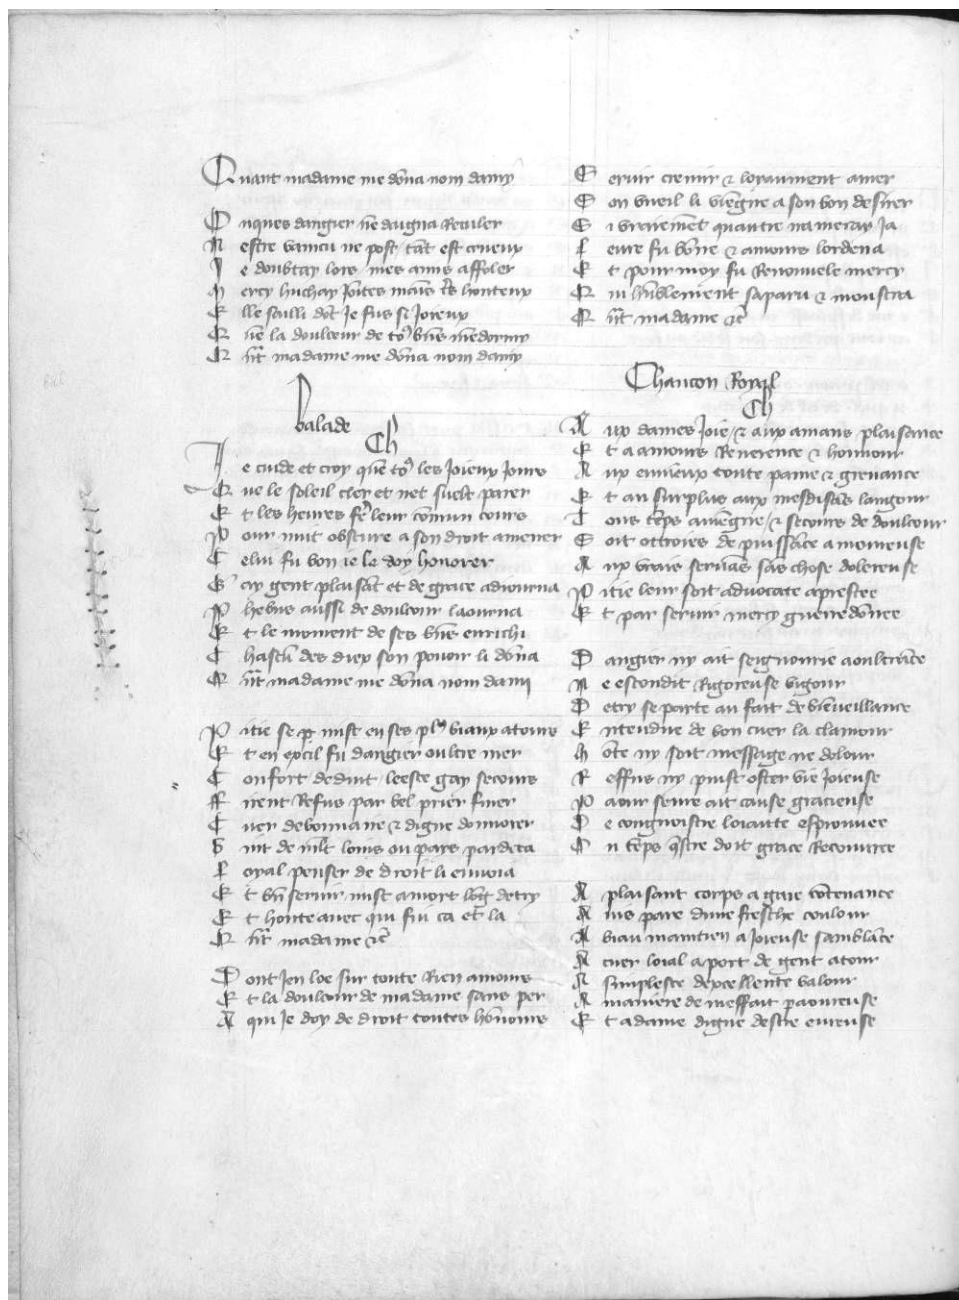 Quant madame me dōna nom damy
Onques dangier nē daigna Reculer
N estre vaincu ne post / tāt est crueux
I e doubtay lors / mes amis affoler
M ercy huchay Jointes mains tˢ honteux
E lle sailli dōt Je fus si Joieux
Q ue la doulceur de toˢ biēs mēdormy
Q ūt madame me dōna nom damy
Balade
Ch
Je cuide et croy quē toˢ les Joieux Jours
Q ue le soleil cler et net suelt parer
E t les heures fere leur cōmun cours
P our nuit obscure a son droit amener
C elui fu bon ie le doy honorer
G ay gent plaisāt et de grace adiourna
P hebus aussi de doulcour laourna
E t le moment de ses biēs enrichi
C hascū des diex son pouoir li dōna
Q ūt madame me dōna nom dami
P itie se p mist en ses plˢ biaux atours
E t en excil fu dangier oultre mer
C onfort deduit / leesce gay secours
ff irent Refus par bel prier finer
C uer debonnaire & digne donnorer
V int de mlt loins ou pars pardeca
L oyal penser de droit li enuoia
E t bn̄ seruir mist amort lōg detry
E t honte auec qui fui ca et la
Q ūt madame &c̄
D ont Jen loe sur toute Rien amours
E t la doulcour de madame sans per
A qui Je doy de droit toutes hōnours
S eruir cremir & loyaument amer
S on vueil li viengne a son bon desirer
S i vraiemēt quautre nameray Ja
L eure fu bōne & amours lordena
E t pour moy fu Renouuele mercy
Q ui hūblement saparu & monstra
Q ūt madame &c̄
Chancon Royal
Ch
A ux dames Joie / & aux amans plaisance
E t a amours Reuerence & honnour
A ux enuieux toute paine & greuance
E t au surplus aux mesdisās langour
T ous tēps auiengne / & secours de doulcour
S oit ottroies de puissāce amoureuse
A ux vrais seruās sās chose dolereuse
P itie leur soit aduocate aprestee
E t par seruir mercy guerredōnee
D angier ny ait seignourie aoultrāce
N e escondit Rigoreuse vigour
D etry se parte au fait de biēueillance
E ntendue de bon cuer la clamour
H ōte ny soit message ne dolour
R effus ny puist oster vie Joieuse
P aour seure ait cause gracieuse
D e congnoistre loiaute esprouuee
E n tēps q̄stre doit grace Recouuree
A plaisant corps a gaie cōtenance
A uis pare dune fresche coulour
A biau maintien a Joieuse samblāce
A cuer loial aport de gent atour
A simplesce dexcellente valour
A maniere de meffait paoureuse
E t adame digne destre eureuse